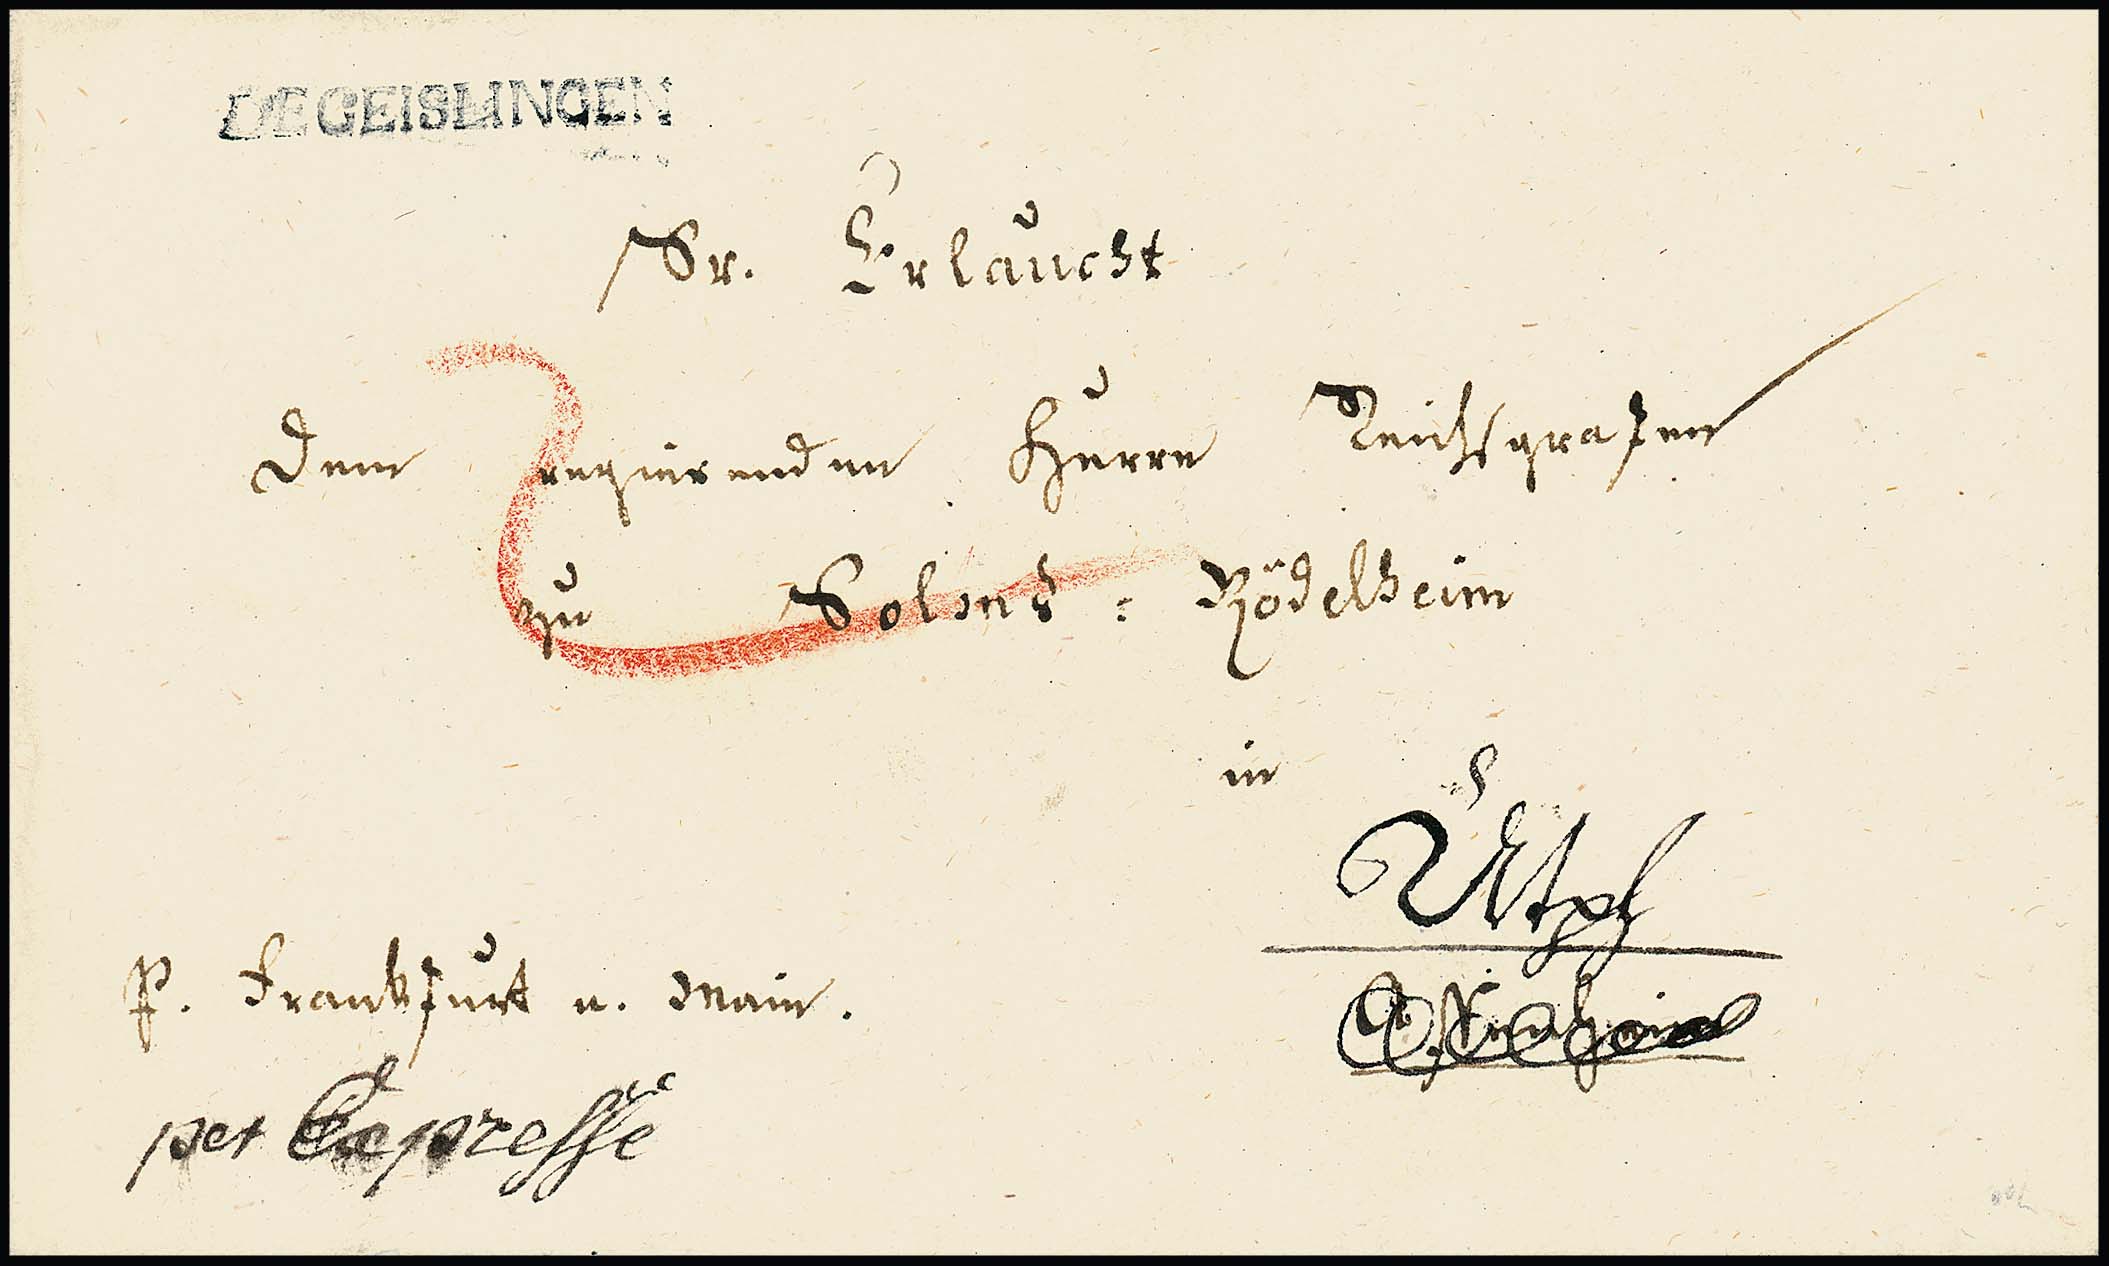 DE GEISLINGEN
Sr. Erlaucht
Dem regierenden Herrn Reichsgrafen
zu Solms = Rödelheim
in
Utph
Assenheim
P. Frankfurt a. Main.
per Expresse